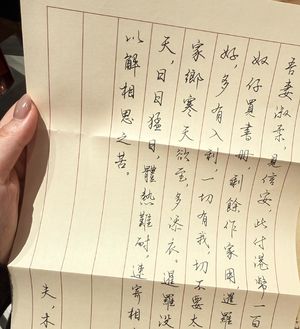 吾妻淑柔，見信安，此付港幣一百
奴仔買書冊，剩餘作家用，暹羅
好，多有入利，一切有我，切不要太
家鄉寒天欲至，多添衣，暹羅沒
天，日日猛日，體熱難耐，速寄相
以解相思之苦。
夫木